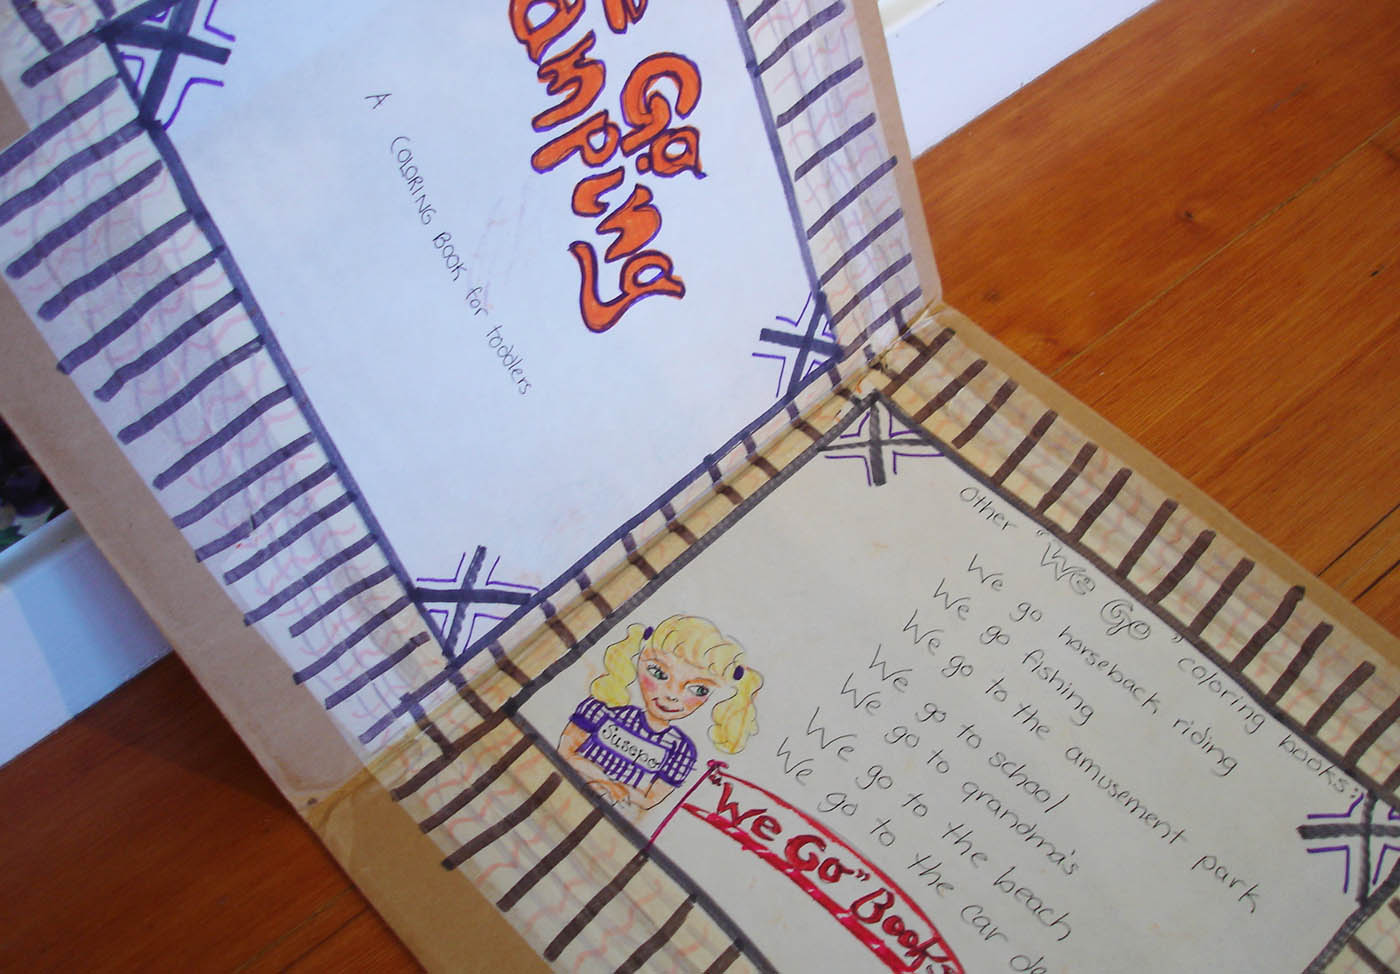 Go
amping
A COLORING BOOK for toddlers
Other "We Go" coloring books:
We go horseback riding
We go fishing
We go to the amusement park
We go to school
We go to grandma's
We go to the beach
We go to the car
Susepo
"We Go" Books